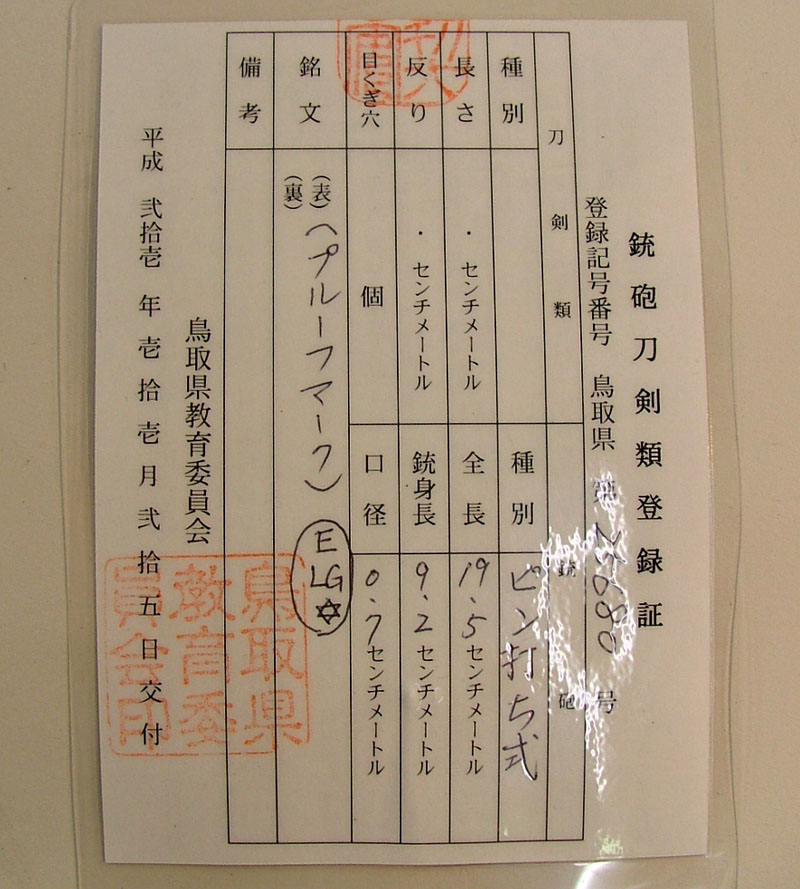 銃砲刀剣類登録証
登録記号番号 鳥取県 第 号
刀剣類
種別
長さ ・ センチメートル
反り ・ センチメートル
目くぎ穴 個
銃砲
種別 ピン打ち式
全長 19.5センチメートル
銃身長 9.2センチメートル
口径 0.7センチメートル
銘文 (表) (プルーフマーク) E LG✡
(裏)
備考
鳥取県教育委員会
平成 弐拾壱 年 壱拾壱 月 弐拾五 日交付
鳥取県
教育委
員会印